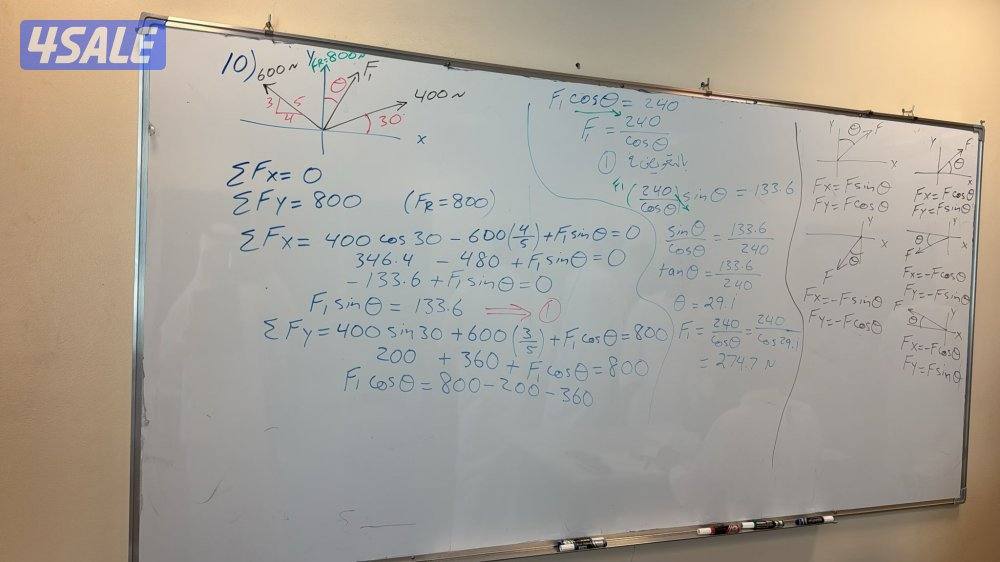 4SALE
10)
600 N
y
FR=800N
θ
F₁
400 N
3
5
4
30
x
ΣFx = 0
ΣFy = 800 (FR = 800)
ΣFx = 400 cos 30 - 600(4/5) + F₁ sinθ = 0
346.4 - 480 + F₁ sinθ = 0
- 133.6 + F₁ sinθ = 0
F₁ sinθ = 133.6 ⟹ ①
ΣFy = 400 sin 30 + 600 (3/5) + F₁ cosθ = 800
200 + 360 + F₁ cosθ = 800
F₁ cosθ = 800 - 200 - 360
F₁ cosθ = 240
F₁ = 240/cosθ
بالتعويض في ①
F₁
(240/cosθ) sinθ = 133.6
sinθ/cosθ = 133.6/240
tanθ = 133.6/240
θ = 29.1
F₁ = 240/cosθ = 240/cos 29.1
= 274.7 N
y
θ
F
x
Fx = F sinθ
Fy = F cosθ
y
x
θ
F
Fx = -F sinθ
Fy = -F cosθ
y
F
θ
x
Fx = F cosθ
Fy = F sinθ
θ
F
Fx = -F cosθ
Fy = -F sinθ
F
θ
x
Fx = -F cosθ
Fy = F sinθ